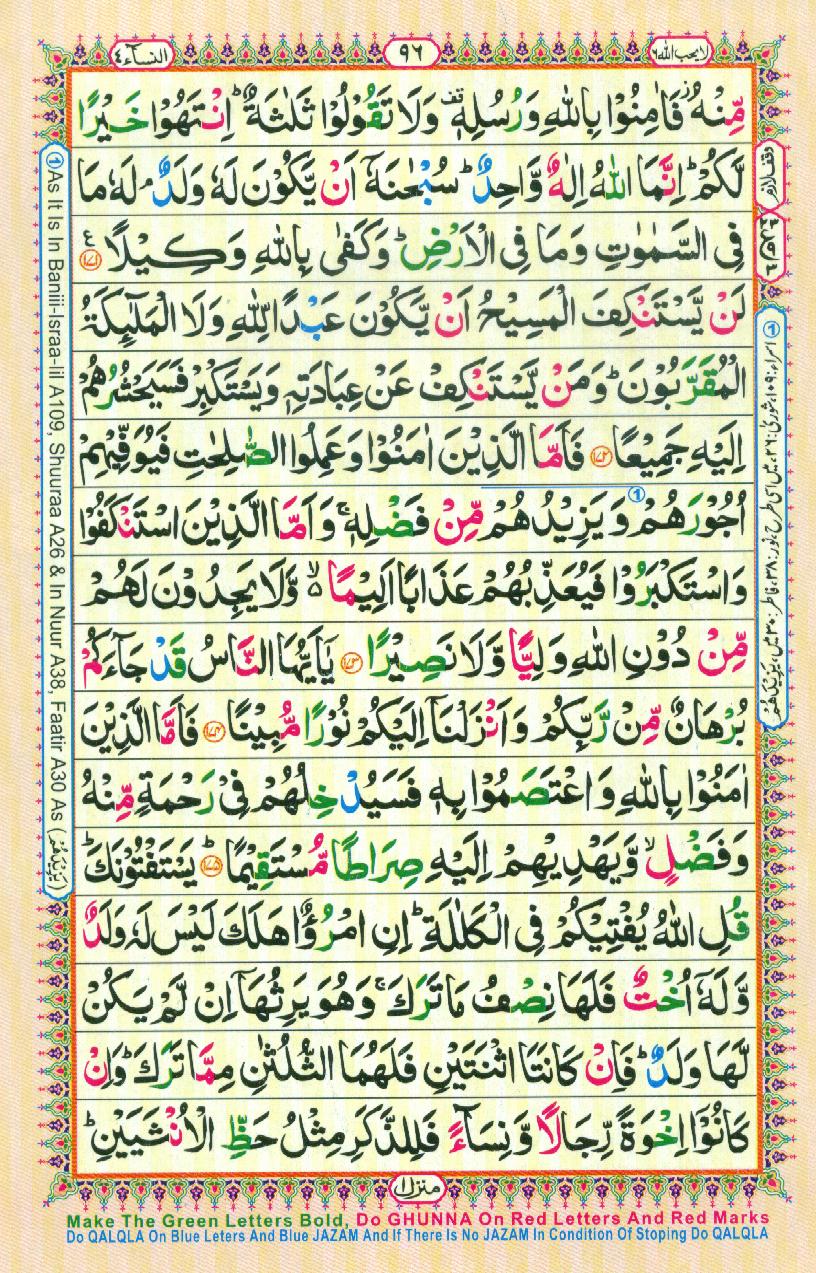 لا يحب الله ٦
٩٦
النسآء ٤
مِّنْهُ ۫ فَاٰمِنُوْا بِاللّٰهِ وَرُسُلِهٖ ۚ۫ وَلَا تَقُوْلُوْا ثَلٰثَةٌ ؕ اِنْتَهُوْا خَيْرًا
لَّكُمْ ؕ اِنَّمَا اللّٰهُ اِلٰهٌ وَّاحِدٌ ؕ سُبْحٰنَهٗۤ اَنْ يَّكُوْنَ لَهٗ وَلَدٌ ۘ لَهٗ مَا
فِى السَّمٰوٰتِ وَمَا فِى الْاَرْضِ ؕ وَكَفٰى بِاللّٰهِ وَكِيْلًا ﴿۱۷۱﴾
لَنْ يَّسْتَنْكِفَ الْمَسِيْحُ اَنْ يَّكُوْنَ عَبْدًا لِّلّٰهِ وَلَا الْمَلٰٓئِكَةُ
الْمُقَرَّبُوْنَ ؕ وَمَنْ يَّسْتَنْكِفْ عَنْ عِبَادَتِهٖ وَيَسْتَكْبِرْ فَسَيَحْشُرُهُمْ
اِلَيْهِ جَمِيْعًا ﴿۱۷۲﴾ فَاَمَّا الَّذِيْنَ اٰمَنُوْا وَعَمِلُوا الصّٰلِحٰتِ فَيُوَفِّيْهِمْ
اُجُوْرَهُمْ وَيَزِيْدُهُمْ مِّنْ فَضْلِهٖ ۚ وَاَمَّا الَّذِيْنَ اسْتَنْكَفُوْا
وَاسْتَكْبَرُوْا فَيُعَذِّبُهُمْ عَذَابًا اَلِيْمًا ۙ۬ وَّلَا يَجِدُوْنَ لَهُمْ
مِّنْ دُوْنِ اللّٰهِ وَلِيًّا وَّلَا نَصِيْرًا ﴿۱۷۳﴾ يٰۤاَيُّهَا النَّاسُ قَدْ جَآءَكُمْ
بُرْهَانٌ مِّنْ رَّبِّكُمْ وَاَنْزَلْنَاۤ اِلَيْكُمْ نُوْرًا مُّبِيْنًا ﴿۱۷۴﴾ فَاَمَّا الَّذِيْنَ
اٰمَنُوْا بِاللّٰهِ وَاعْتَصَمُوْا بِهٖ فَسَيُدْخِلُهُمْ فِىْ رَحْمَةٍ مِّنْهُ
وَفَضْلٍ ۙ وَّيَهْدِيْهِمْ اِلَيْهِ صِرَاطًا مُّسْتَقِيْمًا ﴿۱۷۵﴾ؕ يَسْتَفْتُوْنَكَ ؕ
قُلِ اللّٰهُ يُفْتِيْكُمْ فِى الْكَلٰلَةِ ؕ اِنِ امْرُؤٌا هَلَكَ لَيْسَ لَهٗ وَلَدٌ
وَّلَهٗۤ اُخْتٌ فَلَهَا نِصْفُ مَا تَرَكَ ۚ وَهُوَ يَرِثُهَاۤ اِنْ لَّمْ يَكُنْ
لَّهَا وَلَدٌ ؕ فَاِنْ كَانَتَا اثْنَتَيْنِ فَلَهُمَا الثُّلُثٰنِ مِمَّا تَرَكَ ؕ وَاِنْ
كَانُوْۤا اِخْوَةً رِّجَالًا وَّنِسَآءً فَلِلذَّكَرِ مِثْلُ حَظِّ الْاُنْثَيَيْنِ ؕ
منزل ۱
① As It Is In Baniii-Israa-Iil A109, Shuuraa A26 & In Nuur A38, Faatir A30 As (يَزِيْدَهُمْ)
Make The Green Letters Bold, Do GHUNNA On Red Letters And Red Marks
Do QALQLA On Blue Leters And Blue JAZAM And If There Is No JAZAM In Condition Of Stoping Do QALQLA